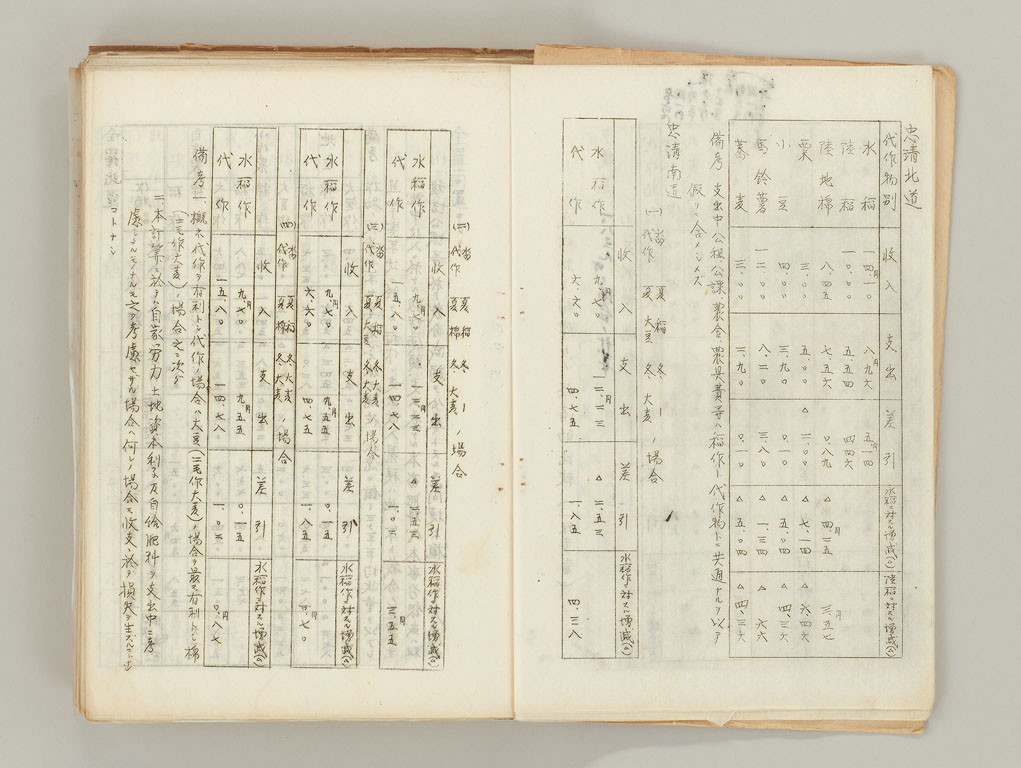 忠清北道
代作物別 収入 支出 差引 水稲ニ対スル増減(△) 陸稲ニ対スル増減(△)
水稲 一四・一〇 八・九六 五・一四
陸稲 一〇・〇〇 五・五四 四・四六
陸地棉 八・四五 七・五六 〇・八九 △四・二五 三・五七
粟 三・〇〇 五・〇〇 △二・〇〇 △七・一四 △六・四六
小豆 四・〇〇 三・九〇 〇・一〇 △五・〇四 △四・三六
馬鈴薯 一二・〇〇 八・二〇 三・八〇 △一・三四 △六六
蕎麦 三・〇〇 三・九〇
備考 支出中公租公課 農舎、農具費等ハ稲作ト代作物トニ共通ナルヲ以テ
仮リニ合メジメズ
忠清南道
(一) 畓 夏 稲 冬 ー
代作 夏 大豆 冬 大麦 ノ場合
収入 支出 差引 水稲作ニ対スル増減(△)
水稲作 九・七〇 一二・二三 △二・五三
代作 六・六〇 四・七五 一・八五 四・三八
(二) 畓 夏 稲 冬 ー
代作 夏 棉 冬 大麦 ノ場合
収入 支出 差引 水稲作ニ対スル増減(△)
水稲作 九・七〇 一二・二三 △二・五三
代作 一五・八〇 一四・七八 一・〇二 三・五五
(三) 畓 夏 稲 冬 大麦
代作 夏 大豆 冬 大麦 ノ場合
収入 支出 差引 水稲作ニ対スル増減(△)
水稲作 九・七〇 九・五五 〇・一五
代作 六・六〇 四・七五 一・八五 一・七〇
(四) 畓 夏 稲 冬 大麦
代作 夏 棉 冬 大麦 ノ場合
収入 支出 差引 水稲作ニ対スル増減(△)
水稲作 九・七〇 九・五五 〇・一五
代作 一五・八〇 一四・七八 一・〇二 〇・八七
備考 一、概ネ代作ヲ有利トシ代作ノ場合ハ大豆(二毛作大麦)ノ場合ヲ最モ有利トシ棉
(二毛作大麦)ノ場合之ニ次グ
二、本計算ニ於テハ自家労力 土地資本利子及自給肥料ヲ支出中ニ考
慮シタルモノナルモ之ヲ考慮セザル場合ハ何レノ場合モ収支ニ於テ損失ヲ生ズル
コトナシ